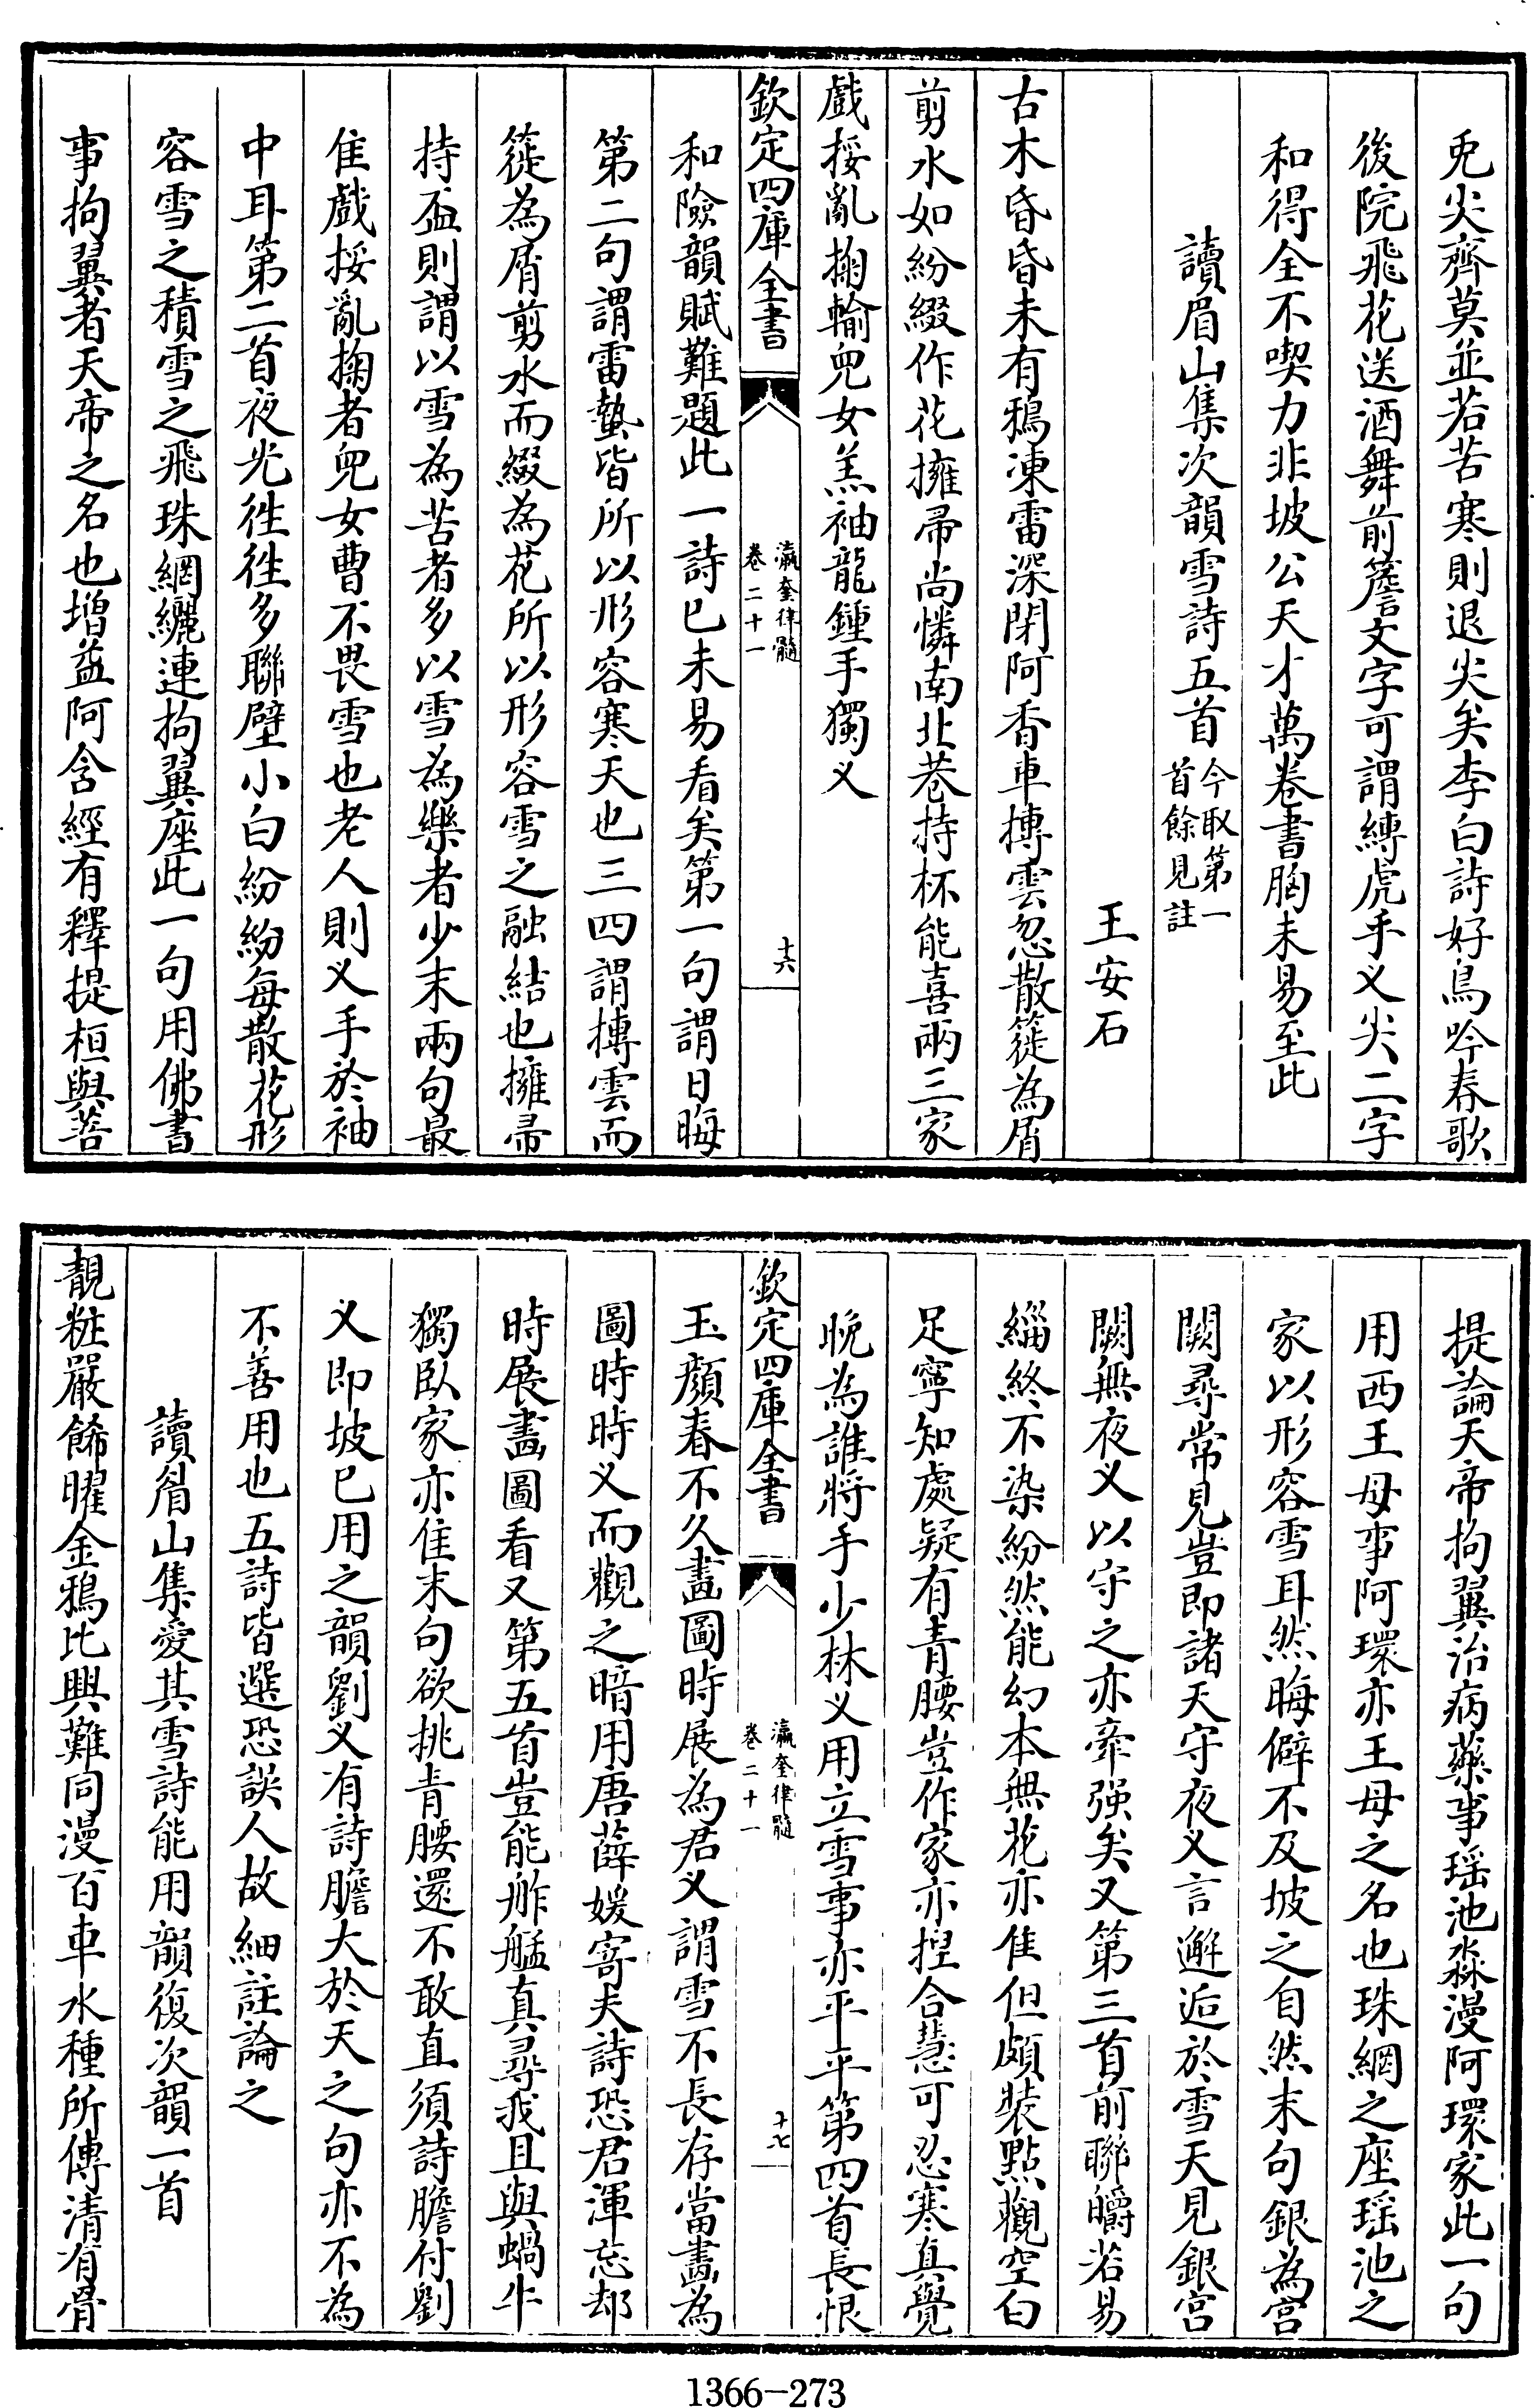 兎尖齊莫並若苦寒則退尖矣李白詩好鳥吟春歌
後院飛花送酒舞前簷文字可謂縛虎手义尖二字
和得全不喫力非坡公天才萬卷書胸未易至此
讀眉山集次韻雪詩五首今取第一
首餘見註
王安石
古木昏昏未有鴉凍雷深閉阿香車摶雲忽散簁為屑
剪水如紛綴作花擁帚尚憐南北巷持杯能喜兩三家
戲挼亂掬輸兒女羔袖龍鍾手獨义
欽定四庫全書
瀛奎律髓
卷二十一
十六
和險韻賦難題此一詩已未易看矣第一句謂日晦
第二句謂雷蟄皆所以形容寒天也三四謂摶雲而
簁為屑剪水而綴為花所以形容雪之融結也擁帚
持盃則謂以雪為苦者多以雪為樂者少末兩句最
佳戲挼亂掬者兒女曹不畏雪也老人則义手於袖
中耳第二首夜光徃徃多聯壁小白紛紛每散花形
容雪之積雪之飛珠網纚連拘翼座此一句用佛書
事拘翼者天帝之名也增益阿含經有釋提桓與菩
提論天帝拘翼治病藥事瑶池淼漫阿環家此一句
用西王母事阿環亦王母之名也珠網之座瑶池之
家以形容雪耳然晦僻不及坡之自然末句銀為宫
闕尋常見豈即諸天守夜义言邂逅於雪天見銀宫
闕無夜义以守之亦牽强矣又第三首前聯皭若易
緇終不染紛然能幻本無花亦佳但頗裝點觀空白
足寧知處疑有青腰豈作家亦揑合慧可忍寒真覺
晚為誰將手少林义用立雪事亦平平第四首長恨
欽定四庫全書
瀛奎律髓
卷二十一
十七
玉顔春不久畫圖時展為君义謂雪不長存當畫為
圖時時义而觀之暗用唐薛媛寄夫詩恐君渾忘却
時展畫圖看又第五首豈能舴艋真尋我且與蝸牛
獨臥家亦佳末句欲挑青腰還不敢直須詩膽付劉
义即坡已用之韻劉义有詩膽大於天之句亦不為
不善用也五詩皆選恐誤人故細註論之
讀眉山集愛其雪詩能用韻復次韻一首
靚粧嚴餙曜金鴉比興難同漫百車水種所傳清有骨
1366-273